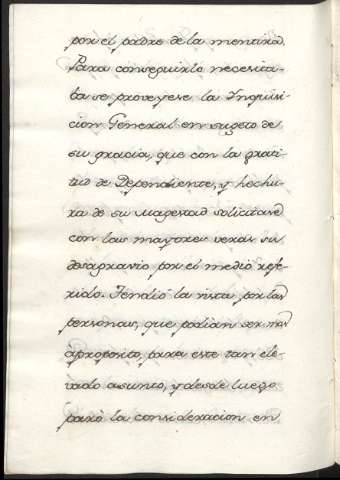 por el padre de la mentira.
Para conseguirlo necesita-
ba se proveyese la Inquisi-
cion General en sugeto de
su gracia, que con la grati-
tud de Dependiente, y hechu-
ra de su Magestad solicitase
con las mayores veras su
desagravio por el medio refe-
rido. Tendió la vista por las
personas, que podian ser mas
aproposito, para este tan ele-
vado asunto, y desde luego
paró la consideracion en